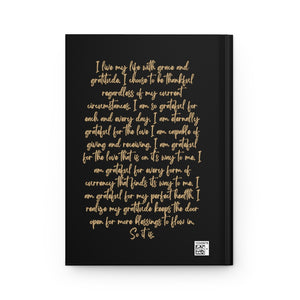 I live my life with grace and
gratitude. I choose to be thankful
regardless of my current
circumstances. I am so grateful for
each and every day. I am eternally
grateful for the love I am capable of
giving and receiving. I am grateful
for the love that is on it's way to me. I
am grateful for every form of
currency that finds its way to me. I
am grateful for my perfect health. I
realize my gratitude keeps the door
open for more blessings to flow in.
So it is.